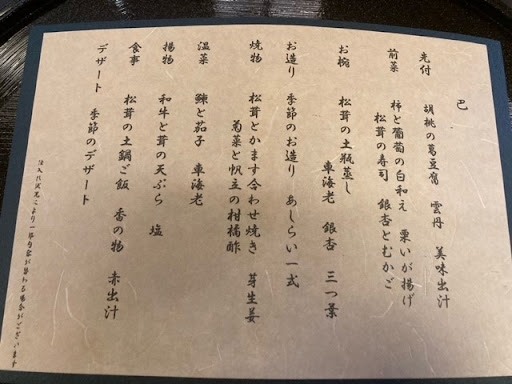 巴
先付　胡桃の葛豆腐　雲丹　美味出汁
前菜　柿と葡萄の白和え　栗いが揚げ
松茸の寿司　銀杏とむかご
お椀　松茸の土瓶蒸し
車海老　銀杏　三つ葉
お造り　季節のお造り　あしらい一式
焼物　松茸とかます合わせ焼き　芽生姜
菊菜と帆立の柑橘酢
温菜　鰊と茄子　車海老
揚物　和牛と茸の天ぷら　塩
食事　松茸の土鍋ご飯　香の物　赤出汁
デザート　季節のデザート
仕入れ状況により一部内容が替わる場合がございます